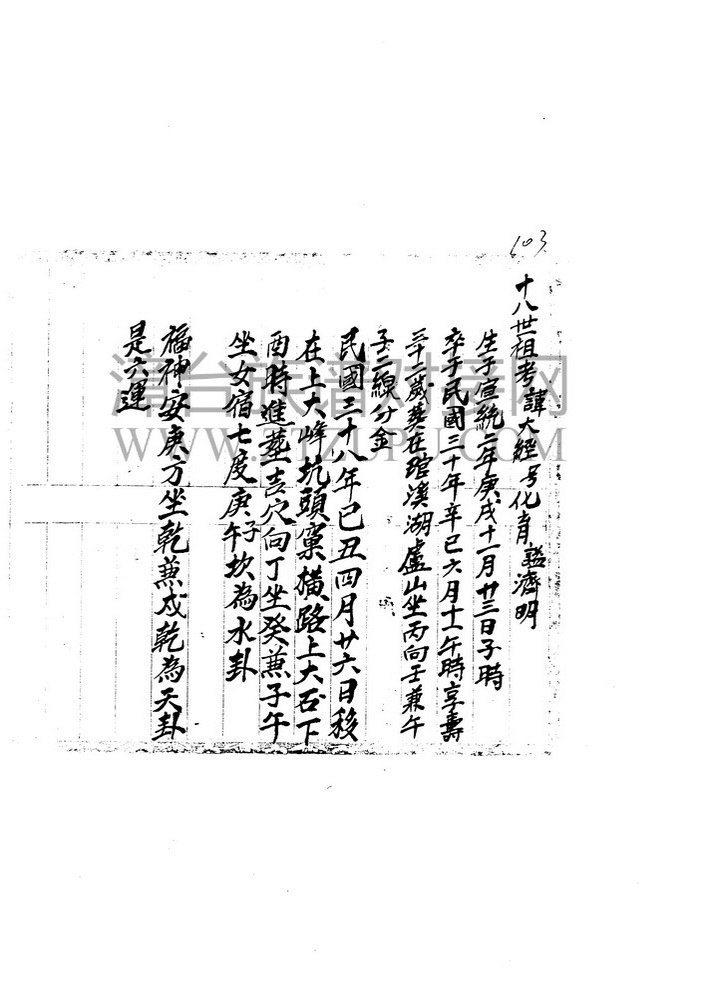 103
十八世祖考諱大經号化育諡濟明
生于宣統二年庚戌十一月廿三日子時
卒于民國三十年辛巳六月十一午時享壽
三十二歲葬在琯溪湖廬山坐丙向壬兼午
子二線分金
民國三十八年己丑四月廿六日移
在上大峰坑頭窠橫路上大石下
酉時進葬吉穴向丁坐癸兼子午
坐女宿七度庚子庚午坎為水卦
福神安庚方坐乾兼戍乾為天卦
是六運
WWW.TTZUPU.COM